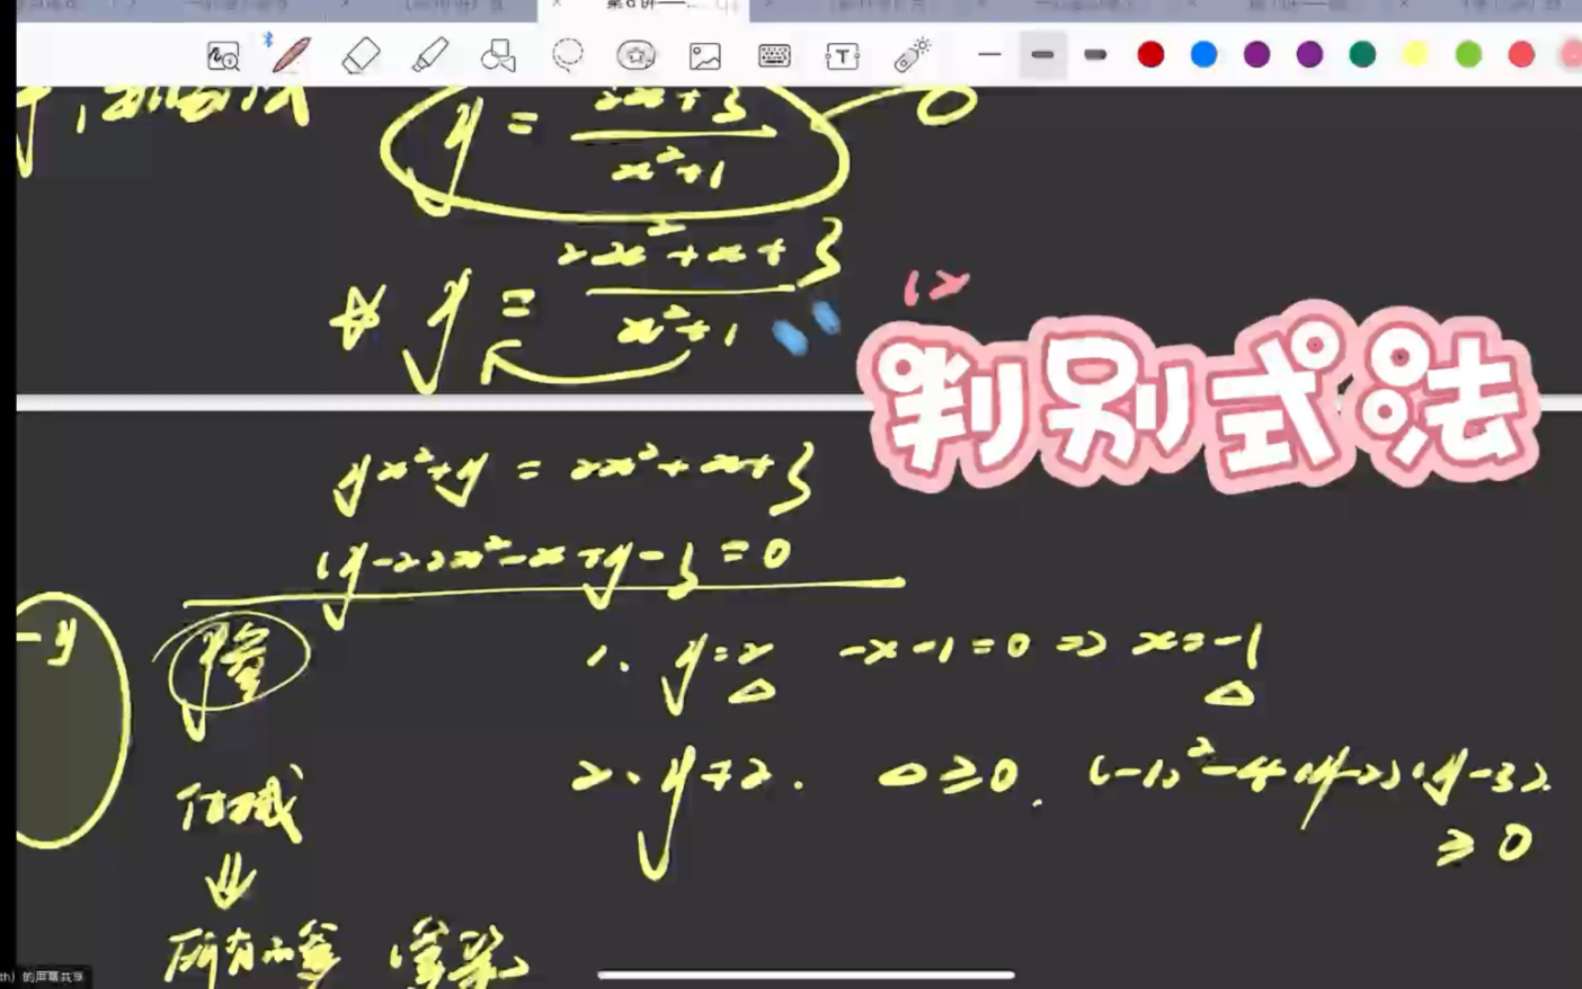 y = 2x+3 / x²+1
☆ y = 2x²+x+3 / x²+1
判别式法
yx²+y = 2x²+x+3
(y-2)x²-x+y-3 = 0
-y
y参
1. y=2 -x-1=0 => x=-1
2. y≠2. △≥0. (-1)²-4(y-2)(y-3)
≥0
值域
⇓
所有的参
的屏幕共享